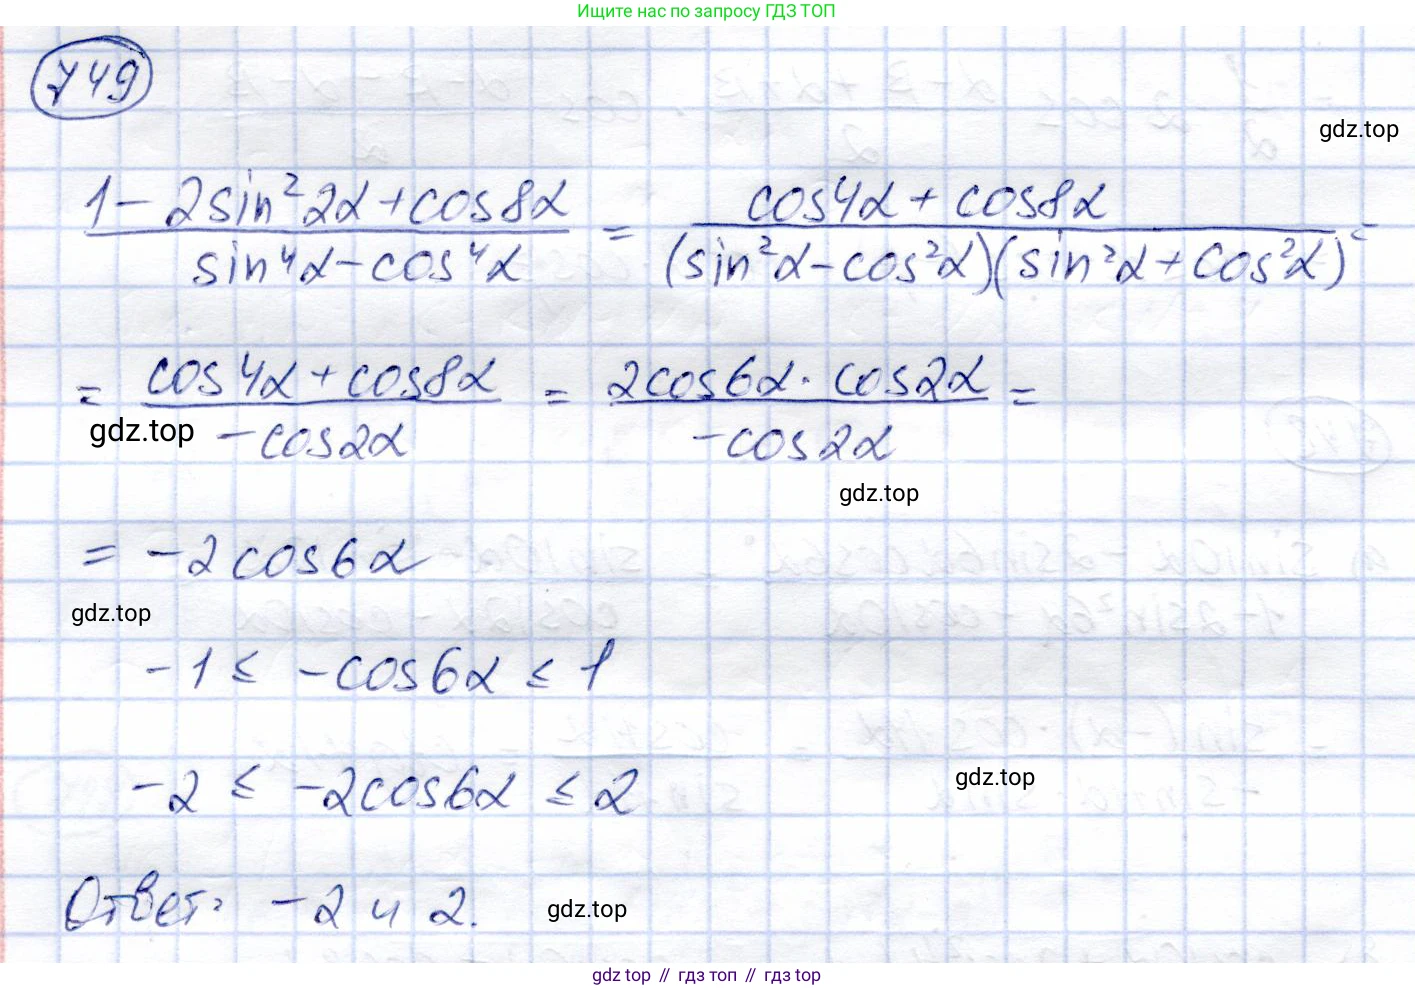 Ищите нас по запросу ГДЗ ТОП
749
gdz.top
1 - 2sin²2α + cos8α / sin⁴α - cos⁴α = cos4α + cos8α / (sin²α - cos²α)(sin²α + cos²α) =
= cos4α + cos8α / -cos2α = 2cos6α · cos2α / -cos2α =
gdz.top
gdz.top
= -2cos6α
gdz.top
-1 ≤ -cos6α ≤ 1
-2 ≤ -2cos6α ≤ 2
gdz.top
Ответ: -2 и 2.
gdz.top
gdz top // гдз топ // гдз top